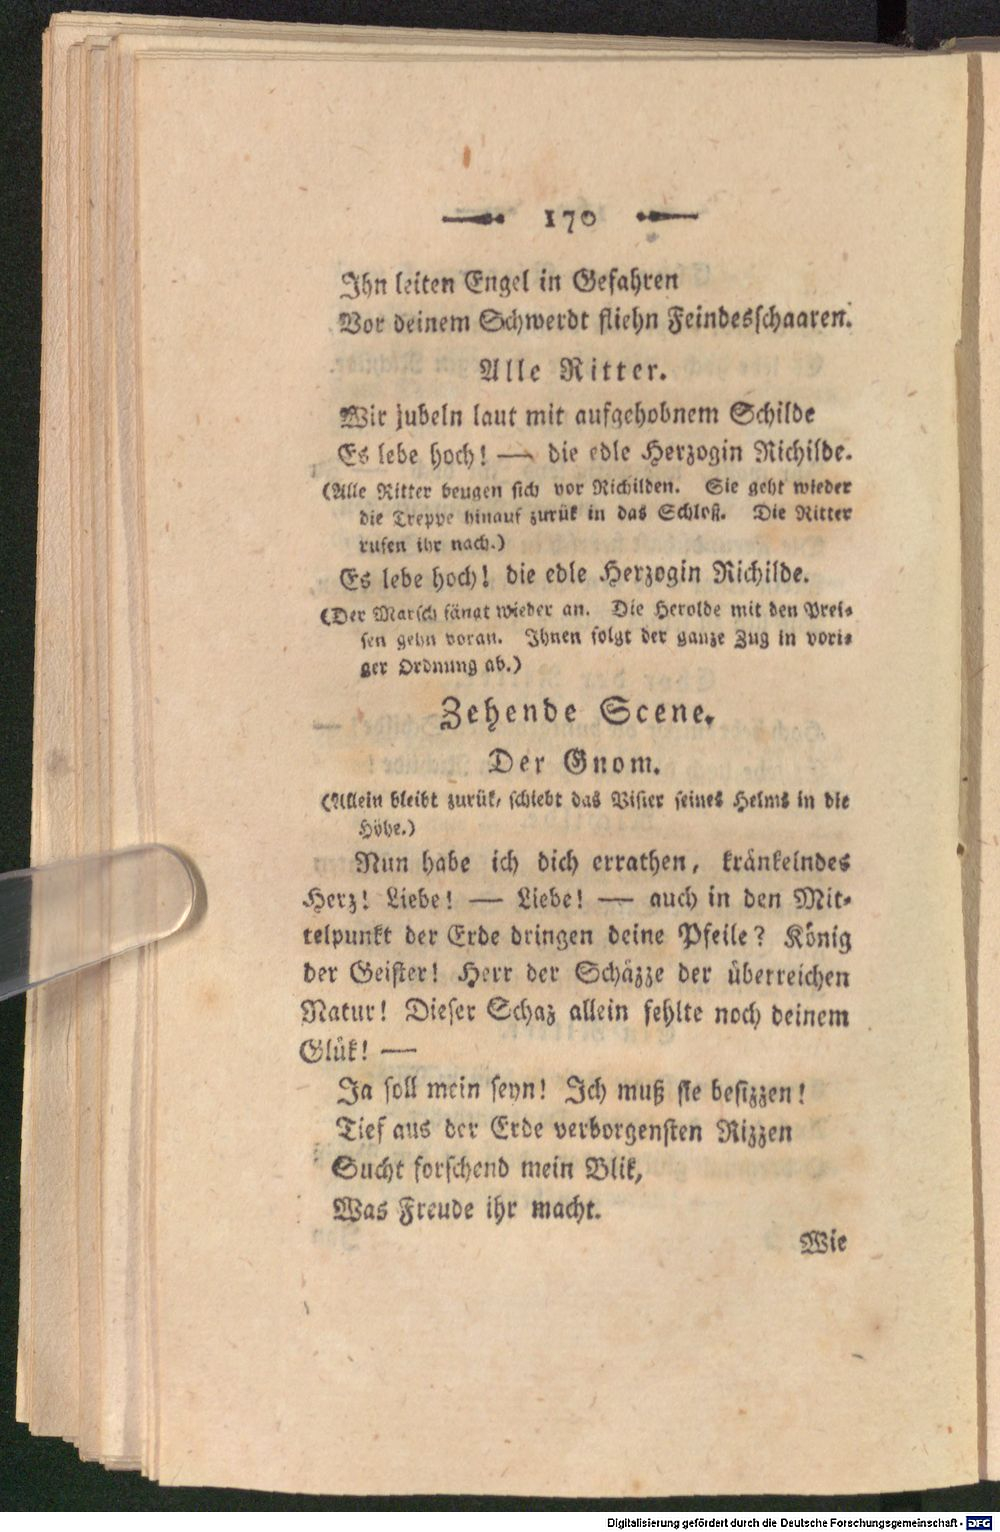 170
Ihn leiten Engel in Gefahren
Vor deinem Schwerdt fliehn Feindesschaaren.
Alle Ritter.
Wir jubeln laut mit aufgehobnem Schilde
Es lebe hoch! — die edle Herzogin Richilde.
(Alle Ritter beugen sich vor Richilden. Sie geht wieder
die Treppe hinauf zurük in das Schloß. Die Ritter
rufen ihr nach.)
Es lebe hoch! die edle Herzogin Richilde.
(Der Marsch fängt wieder an. Die Herolde mit den Prei-
sen gehn voran. Ihnen folgt der ganze Zug in vori-
ger Ordnung ab.)
Zehende Scene.
Der Gnom.
(Allein bleibt zurük, schiebt das Visier seines Helms in die
Höhe.)
Nun habe ich dich errathen, kränkelndes
Herz! Liebe! — Liebe! — auch in den Mit-
telpunkt der Erde dringen deine Pfeile? König
der Geister! Herr der Schäzze der überreichen
Natur! Dieser Schaz allein fehlte noch deinem
Glük! —
Ja soll mein seyn! Ich muß sie besizzen!
Tief aus der Erde verborgensten Rizzen
Sucht forschend mein Blik,
Was Freude ihr macht.
Wie
Digitalisierung gefördert durch die Deutsche Forschungsgemeinschaft - DFG